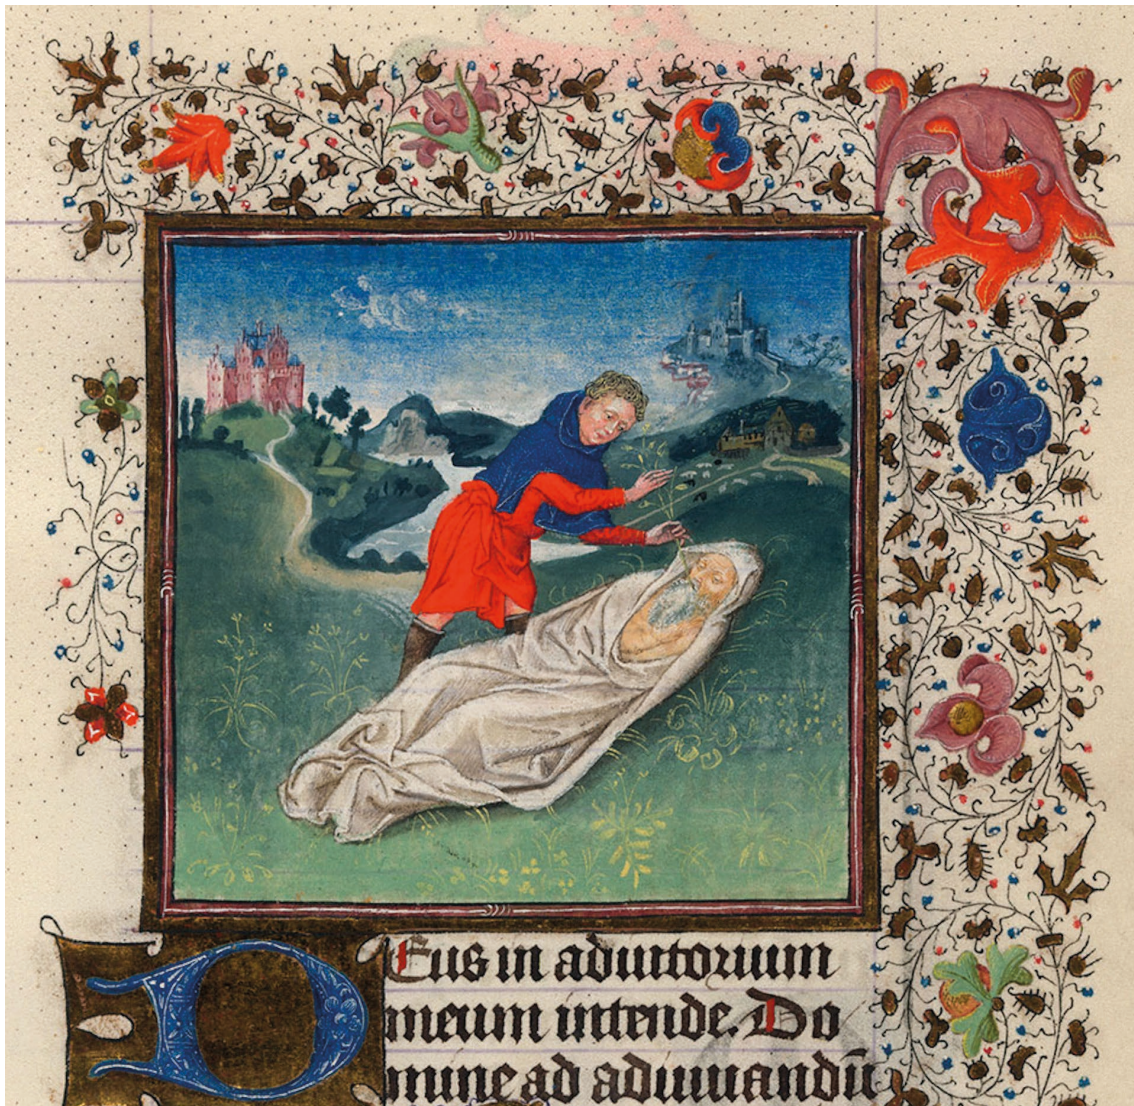 Deus in adiutorium
meum intende. Do
mine ad adiuuandū